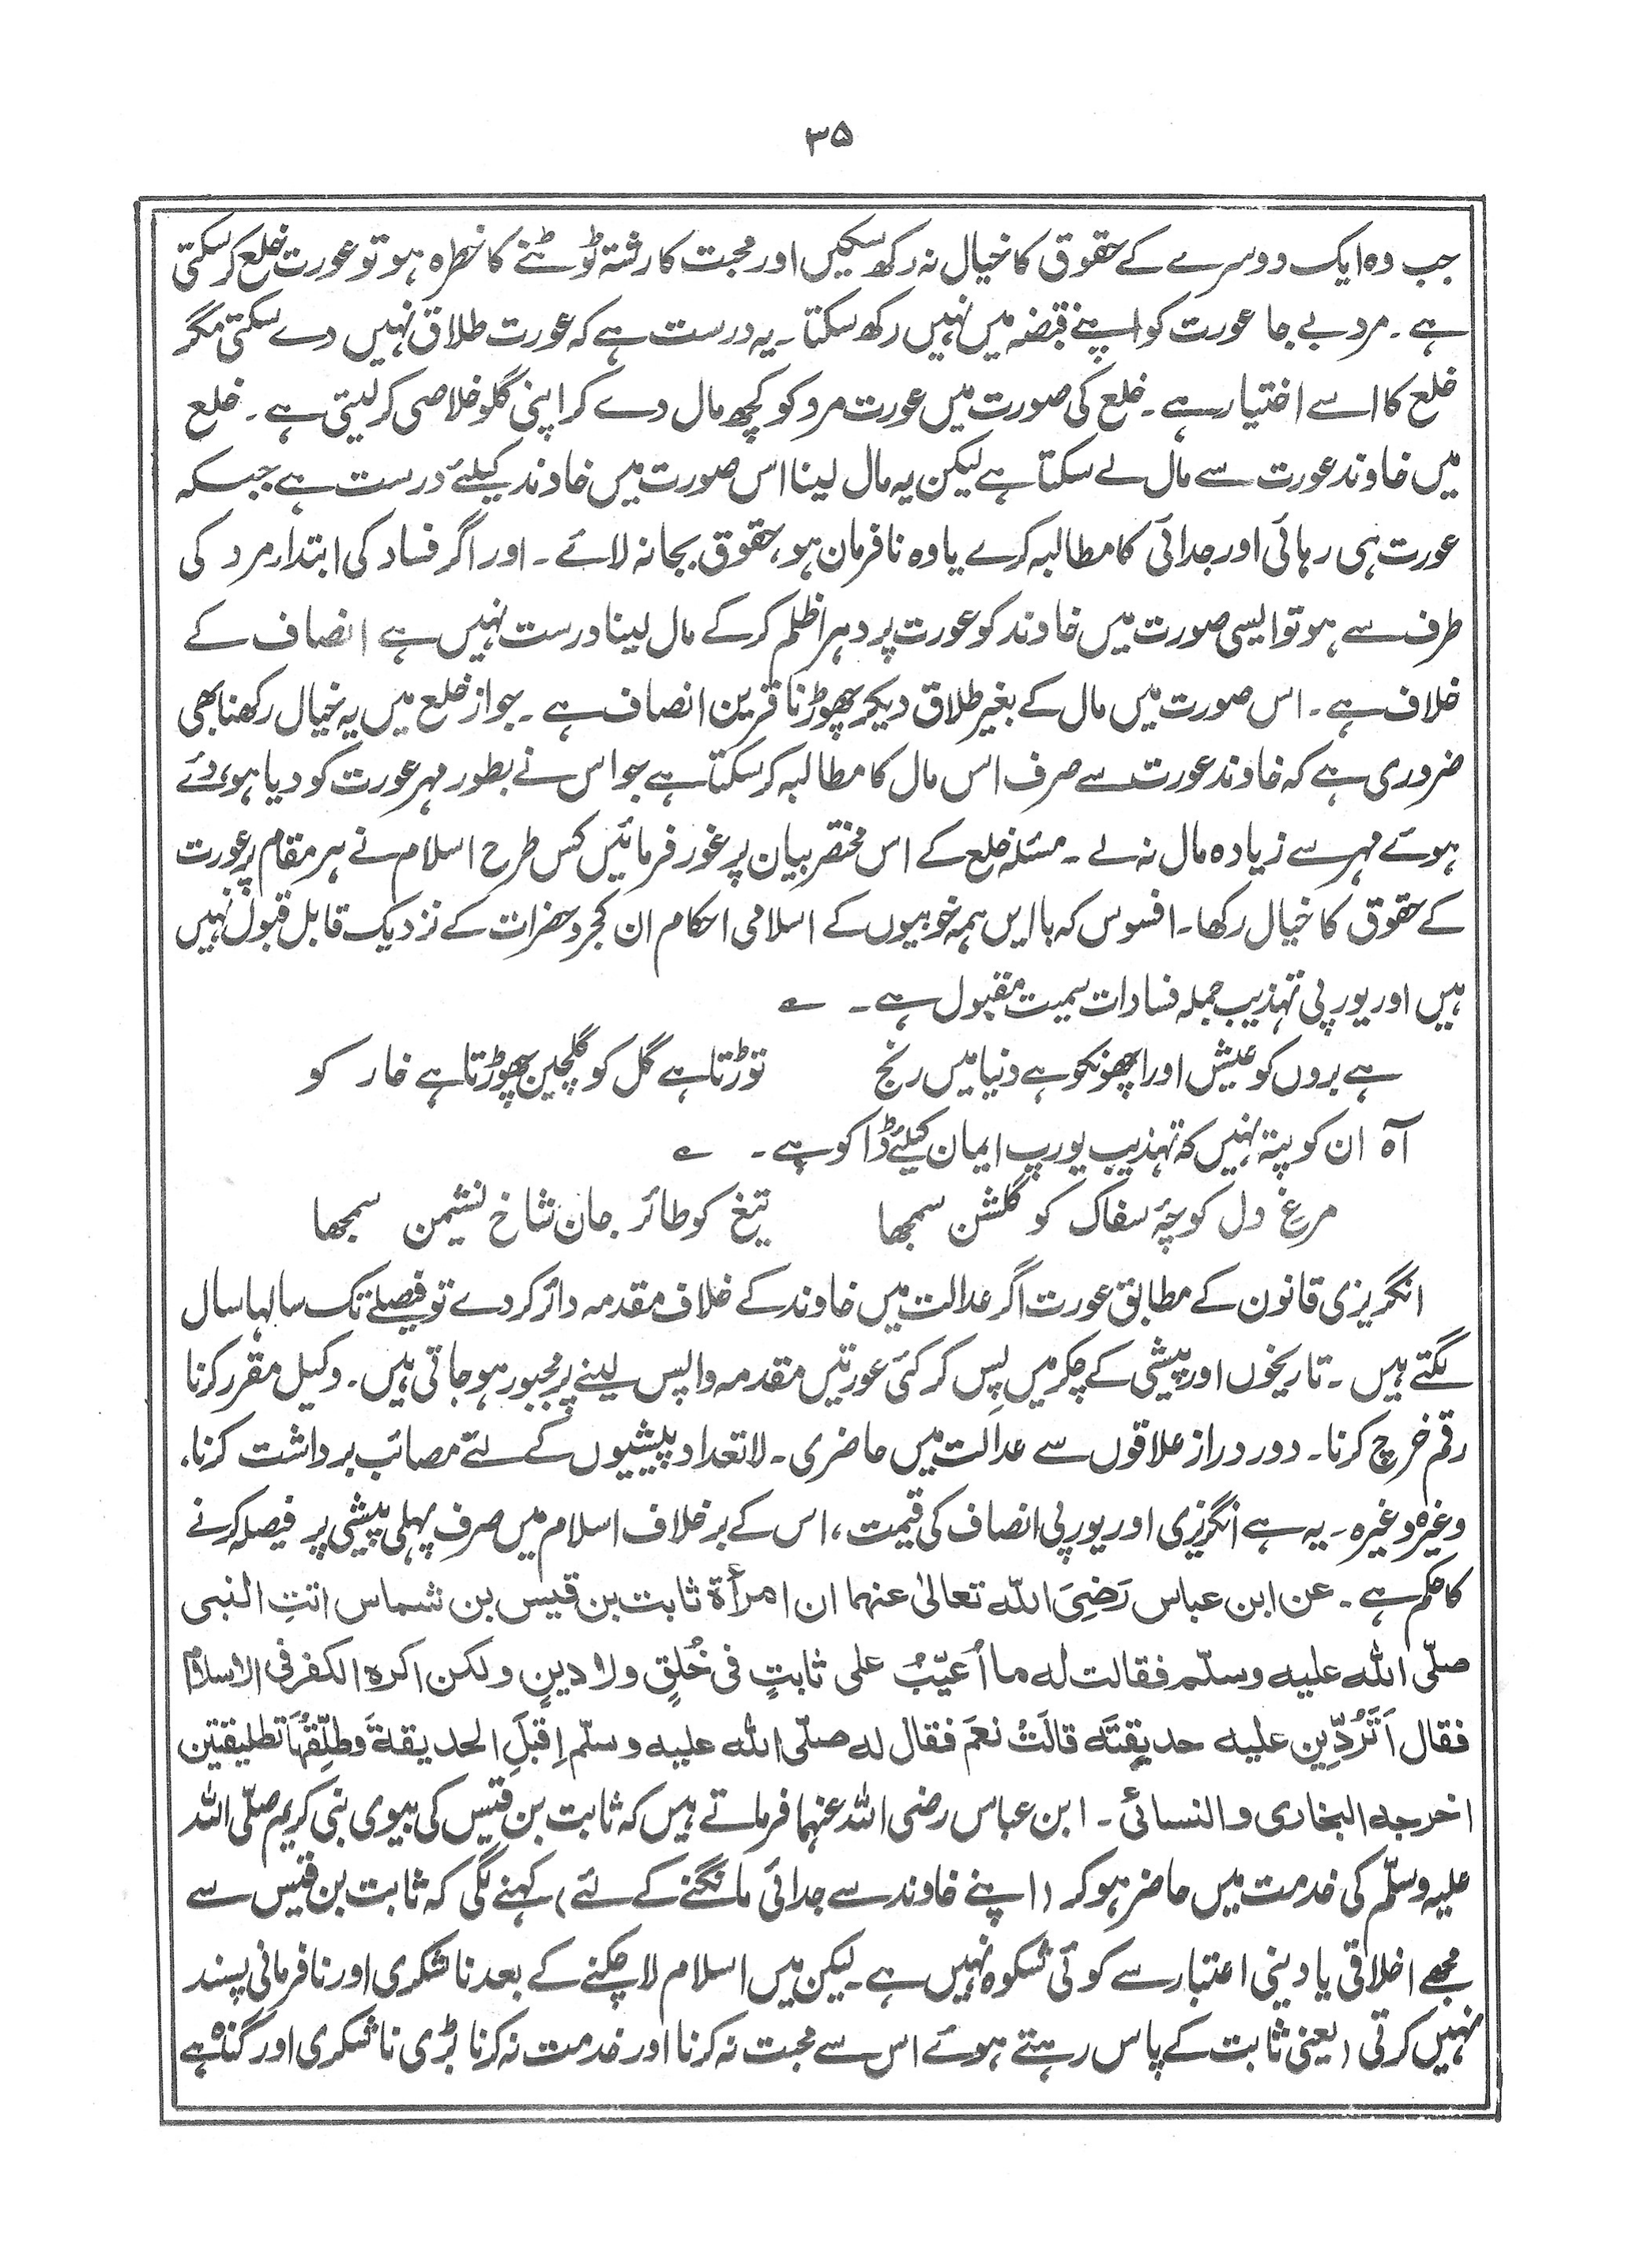 ۳۵
جب وہ ایک دوسرے کے حقوق کا خیال نہ رکھ سکیں اور محبت کا رشتہ ٹوٹنے کا خطرہ ہو تو عورت خلع کر سکتی
ہے ۔ مرد بے جا عورت کو اپنے قبضہ میں نہیں رکھ سکتا ۔ یہ درست ہے کہ عورت طلاق نہیں دے سکتی مگر
خلع کا اسے اختیار ہے ۔ خلع کی صورت میں عورت مرد کو کچھ مال دے کر اپنی گلو خلاصی کر لیتی ہے ۔ خلع
میں خاوند عورت سے مال لے سکتا ہے لیکن یہ مال لینا اس صورت میں خاوند کیلئے درست ہے جبکہ
عورت ہی رہائی اور جدائی کا مطالبہ کرے یا وہ نافرمان ہو، حقوق بجا نہ لائے ۔ اور اگر فساد کی ابتداء مرد کی
طرف سے ہو تو ایسی صورت میں خاوند کو عورت پر دہرا ظلم کر کے مال لینا درست نہیں ہے انصاف کے
خلاف ہے ۔ اس صورت میں مال کے بغیر طلاق دیکر چھوڑنا قرین انصاف ہے ۔ جواز خلع میں یہ خیال رکھنا بھی
ضروری ہے کہ خاوند عورت سے صرف اس مال کا مطالبہ کر سکتا ہے جو اس نے بطور مہر عورت کو دیا ہو، دئے
ہوئے مہر سے زیادہ مال نہ لے ۔ مسئلہ خلع کے اس مختصر بیان پر غور فرمائیں کس طرح اسلام نے ہر مقام پر عورت
کے حقوق کا خیال رکھا ۔ افسوس کہ باایں ہمہ خوبیوں کے اسلامی احکام ان کجرو حضرات کے نزدیک قابل قبول نہیں
ہیں اور یورپی تہذیب جملہ فسادات سمیت مقبول ہے ۔ ؎
ہے بروں کو عیش اور اچھونکو ہے دنیا میں رنج توڑتا ہے گل کو گلچین چھوڑتا ہے خار کو
آہ ان کو پتہ نہیں کہ تہذیب یورپ ایمان کیلئے ڈاکو ہے ۔ ؎
مرغ دل کوچۂ سفاک کو گلشن سمجھا تیغ کو طائر جان شاخ نشیمن سمجھا
انگریزی قانون کے مطابق عورت اگر عدالت میں خاوند کے خلاف مقدمہ دائر کر دے تو فیصلے تک سالہا سال
لگتے ہیں ۔ تاریخوں اور پیشی کے چکر میں پِس کر کئی عورتیں مقدمہ واپس لینے پر مجبور ہو جاتی ہیں ۔ وکیل مقرر کرنا
رقم خرچ کرنا ۔ دور دراز علاقوں سے عدالت میں حاضری ۔ لاتعداد پیشیوں کے لئے مصائب برداشت کرنا ۔
وغیرہ وغیرہ ۔ یہ ہے انگریزی اور یورپی انصاف کی قیمت، اس کے برخلاف اسلام میں صرف پہلی پیشی پر فیصلہ کرنے
کا حکم ہے ۔ عن ابن عباس رَضِیَ اللہ تعالیٰ عنہما ان امرأۃ ثابت بن قیس بن شماس اتتِ النبی
صلّی اللہ علیہ وسلّم فقالت لہ ما اُعیّبُ علی ثابتٍ فی خُلقٍ ولا دینٍ ولکن اکرہ الکفر فی الاسلام
فقال اَتَرُدِّین علیہ حدیقتَہ قالَتْ نعمَ فقال لہ صلّی اللہ علیہ وسلّم اِقبَلِ الحدیقۃَ وَطلِّقہَا تطلیقتین
اخرجہ البخاری والنسائی ۔ ابن عباس رضی اللہ عنہما فرماتے ہیں کہ ثابت بن قیس کی بیوی نبی کریم صلّی اللہ
علیہ وسلّم کی خدمت میں حاضر ہو کر (اپنے خاوند سے جدائی مانگنے کے لئے) کہنے لگی کہ ثابت بن قیس سے
مجھے اخلاقی یا دینی اعتبار سے کوئی شکوہ نہیں ہے ۔ لیکن میں اسلام لا چکنے کے بعد ناشکری اور نافرمانی پسند
نہیں کرتی (یعنی ثابت کے پاس رہتے ہوئے اس سے محبت نہ کرنا اور خدمت نہ کرنا بڑی ناشکری اور گناہ ہے